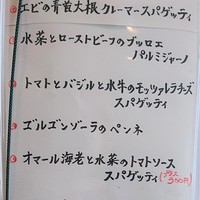 エビの青首大根クレーマースパゲッティ
水菜とローストビーフのブッロエ
パルミジャーノ
トマトとバジルと水牛のモッツァレラチーズ
スパゲッティ
ゴルゴンゾーラのペンネ
オマール海老と水菜のトマトソース
スパゲッティ(プラス300円)